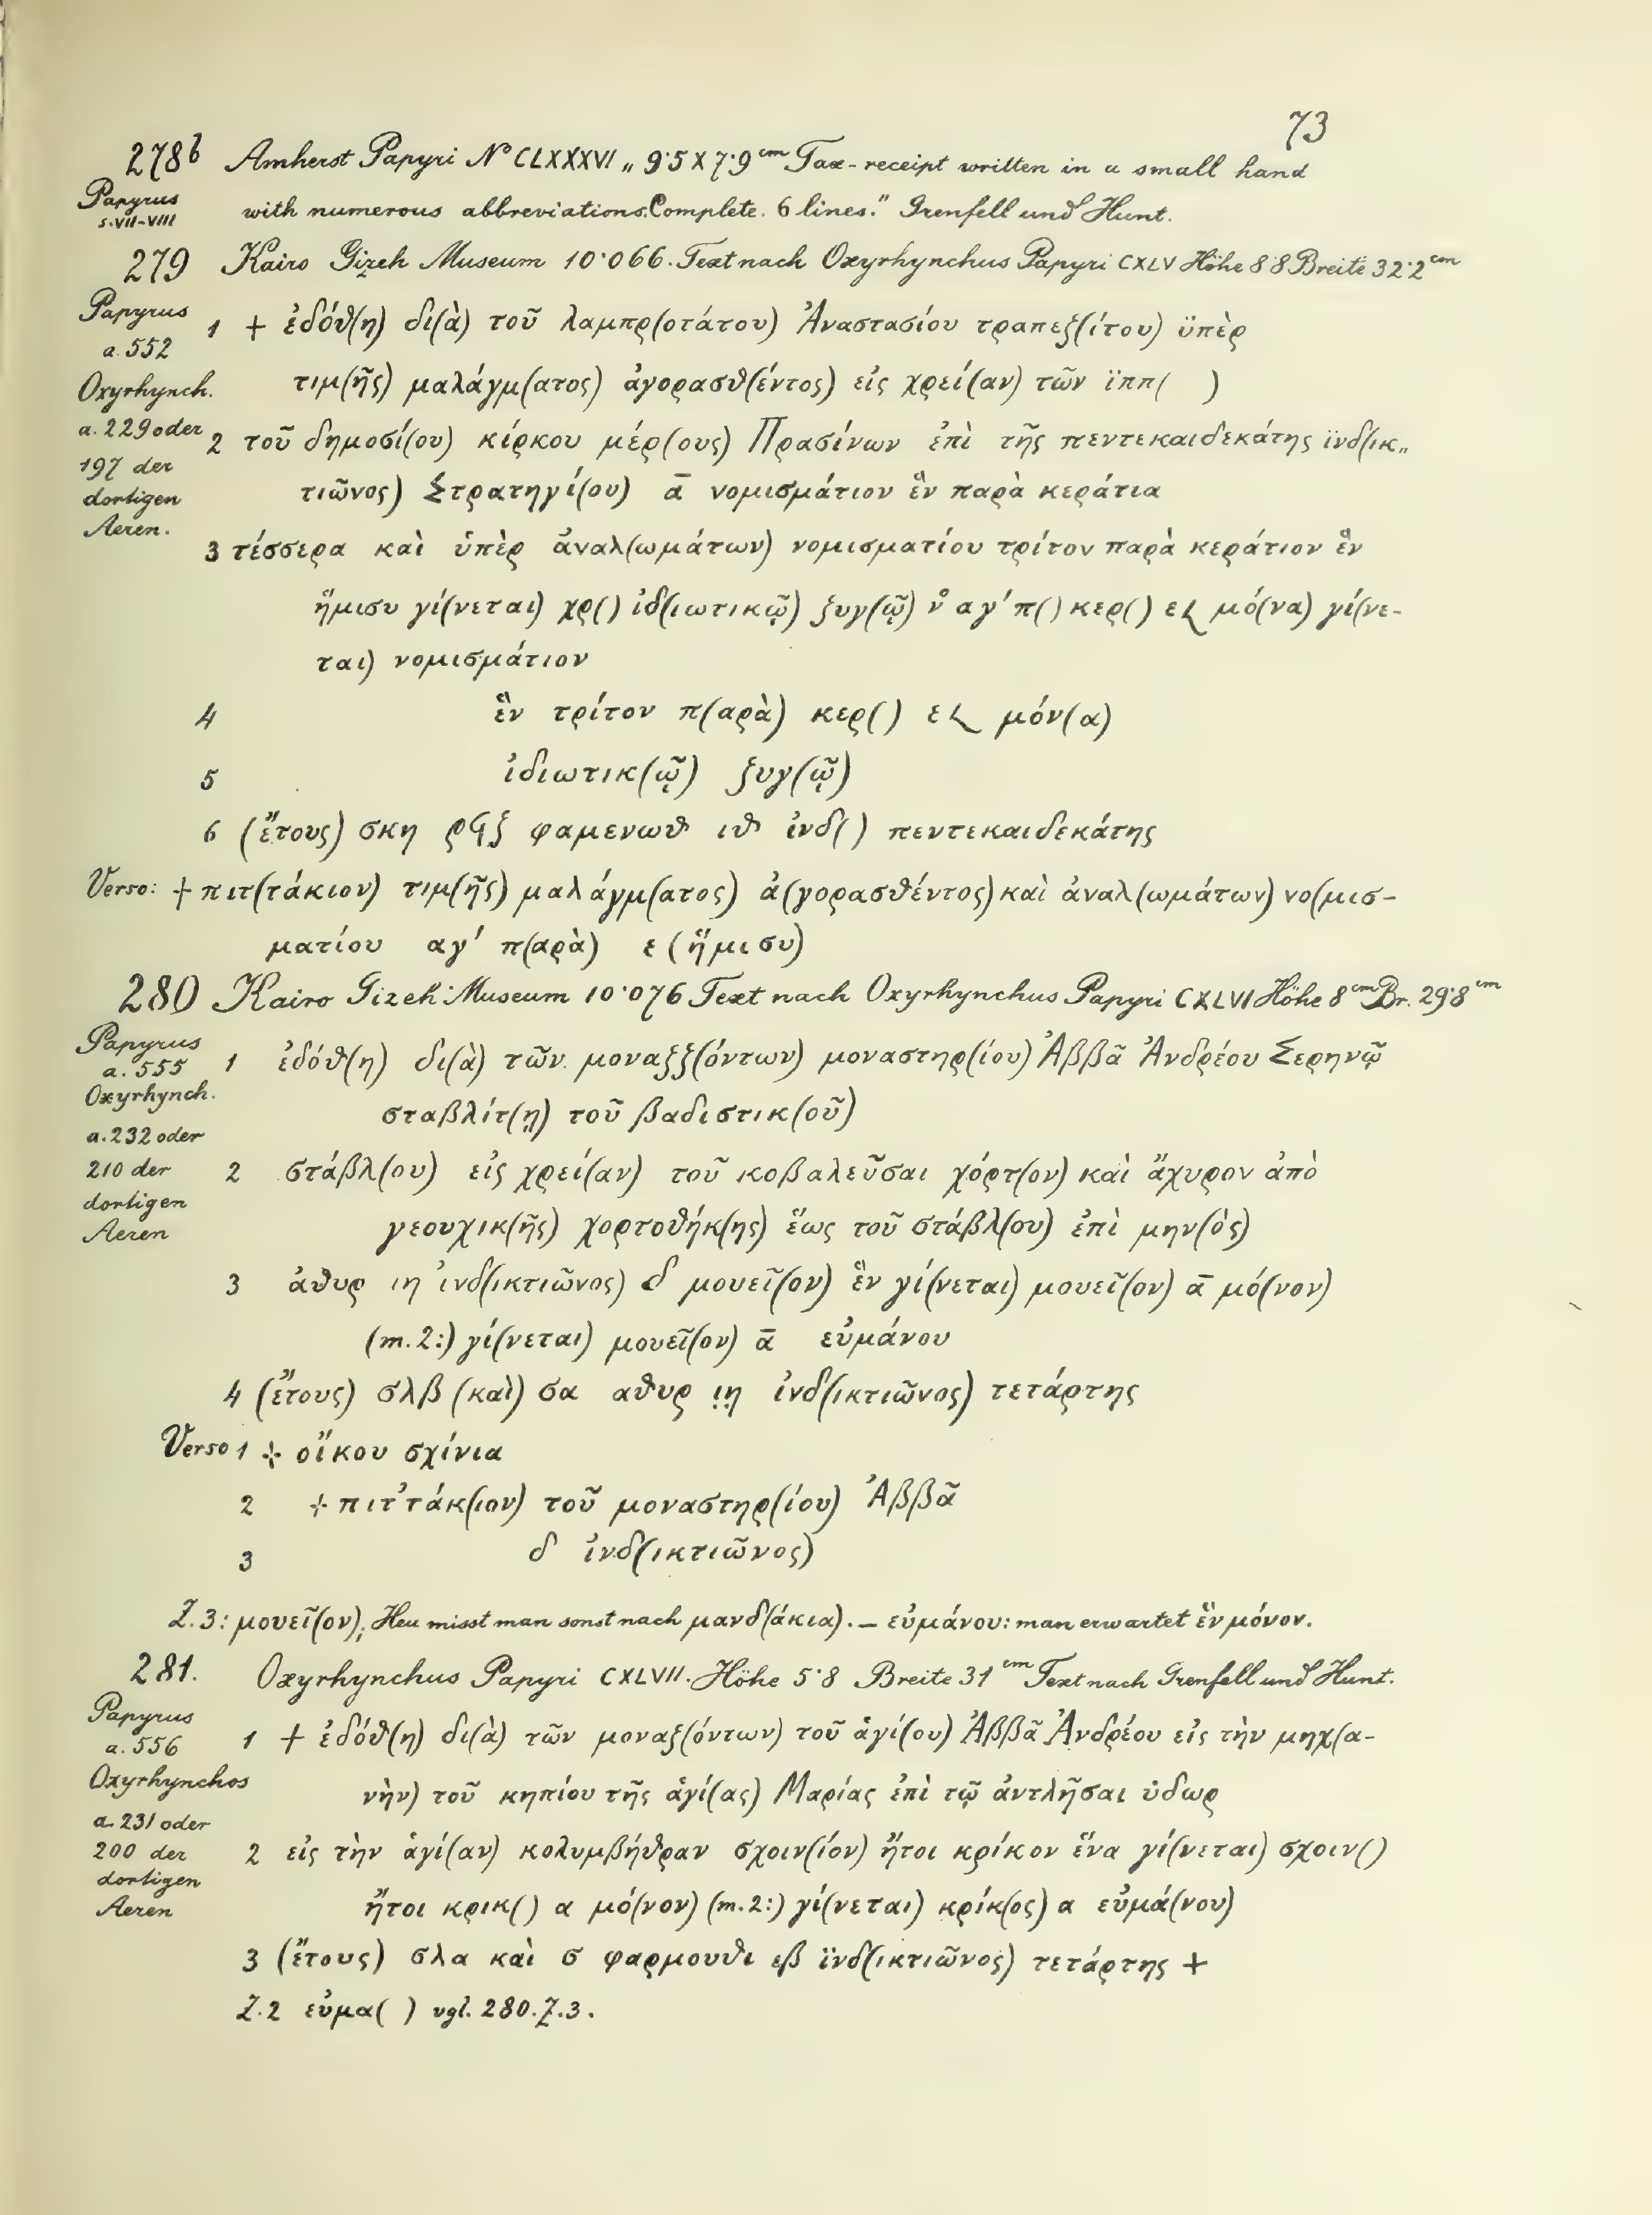 73
278b Amherst Papyri No CLXXXVI „ 9·5 X 7·9 cm Tax-receipt written in a small hand
Papyrus
s. VII-VIII
with numerous abbreviations. Complete. 6 lines." Grenfell und Hunt.
279 Kairo Gizeh Museum 10·066. Text nach Oxyrhynchus Papyri CXLV Höhe 8·8 Breite 32·2 cm
Papyrus
a. 552
Oxyrhynch.
a. 229 oder
197 der
dortigen
Aeren.
1 + ἐδόθ(η) δι(ὰ) τοῦ λαμπρ(οτάτου) Ἀναστασίου τραπεζ(ίτου) ϋπὲρ
τιμ(ῆς) μαλάγμ(ατος) ἀγορασθ(έντος) εἰς χρεί(αν) τῶν ϊππ( )
2 τοῦ δημοσί(ου) κίρκου μέρ(ους) Πρασίνων ἐπὶ τῆς πεντεκαιδεκάτης ϊνδ(ικ„
τιῶνος) Στρατηγί(ου) ᾱ νομισμάτιον ἓν παρὰ κεράτια
3 τέσσερα καὶ ὑπὲρ ἀναλ(ωμάτων) νομισματίου τρίτον παρὰ κεράτιον ἓν
ἥμισυ γί(νεται) χρ() ἰδ(ιωτικῷ) ζυγ(ῷ) ν̊ αγ' π() κερ() ε𐅵 μό(να) γί(νε-
ται) νομισμάτιον
4 ἓν τρίτον π(αρὰ) κερ() ε𐅵 μόν(α)
5 ἰδιωτικ(ῷ) ζυγ(ῷ)
6 (ἔτους) σκη ρϟζ φαμενωθ ιθ ἰνδ() πεντεκαιδεκάτης
Verso: + πιτ(τάκιον) τιμ(ῆς) μαλάγμ(ατος) ἀ(γορασθέντος) καὶ ἀναλ(ωμάτων) νο(μισ-
ματίου αγ' π(αρὰ) ε (ἥμισυ)
280 Kairo Gizeh Museum 10·076 Text nach Oxyrhynchus Papyri CXLVI Höhe 8 cm Br. 29·8 cm
Papyrus
a. 555
Oxyrhynch.
a. 232 oder
210 der
dortigen
Aeren
1 ἐδόθ(η) δι(ὰ) τῶν μοναζζ(όντων) μοναστηρ(ίου) Ἀββᾶ Ἀνδρέου Σερηνῷ
σταβλίτ(ῃ) τοῦ βαδιστικ(οῦ)
2 στάβλ(ου) εἰς χρεί(αν) τοῦ κοβαλεῦσαι χόρτ(ον) καὶ ἄχυρον ἀπὸ
γεουχικ(ῆς) χορτοθήκ(ης) ἕως τοῦ στάβλ(ου) ἐπὶ μην(ὸς)
3 ἀθυρ ιη ἰνδ(ικτιῶνος) δ μουεῖ(ον) ἓν γί(νεται) μουεῖ(ον) ᾱ μό(νον)
(m. 2:) γί(νεται) μουεῖ(ον) ᾱ εὐμάνου
4 (ἔτους) σλβ (καὶ) σα αθυρ ι̣η̣ ἰνδ(ικτιῶνος) τετάρτης
Verso 1 + οἴκου σχίνια
2 + πιτ'τάκ(ιον) τοῦ μοναστηρ(ίου) Ἀββᾶ
3 δ ἰνδ(ικτιῶνος)
Z. 3: μουεῖ(ον); Heu misst man sonst nach μανδ(άκια). – εὐμάνου: man erwartet ἓν μόνον.
281. Oxyrhynchus Papyri CXLVII. Höhe 5·8 Breite 31 cm Text nach Grenfell und Hunt.
Papyrus
a. 556
Oxyrhynchos
a. 231 oder
200 der
dortigen
Aeren
1 + ἐδόθ(η) δι(ὰ) τῶν μοναζ(όντων) τοῦ ἁγί(ου) Ἀββᾶ Ἀνδρέου εἰς τὴν μηχ(α-
νὴν) τοῦ κηπίου τῆς ἁγί(ας) Μαρίας ἐπὶ τῷ ἀντλῆσαι ὑδωρ
2 εἰς τὴν ἁγί(αν) κολυμβήθραν σχοιν(ίον) ἤτοι κρίκον ἕνα γί(νεται) σχοιν()
ἤτοι κρικ() α μό(νον) (m. 2:) γί(νεται) κρίκ(ος) α εὐμά(νου)
3 (ἔτους) σλα καὶ σ φαρμουθι εβ ϊνδ(ικτιῶνος) τετάρτης +
Z. 2 εὐμα( ) vgl. 280. Z. 3.